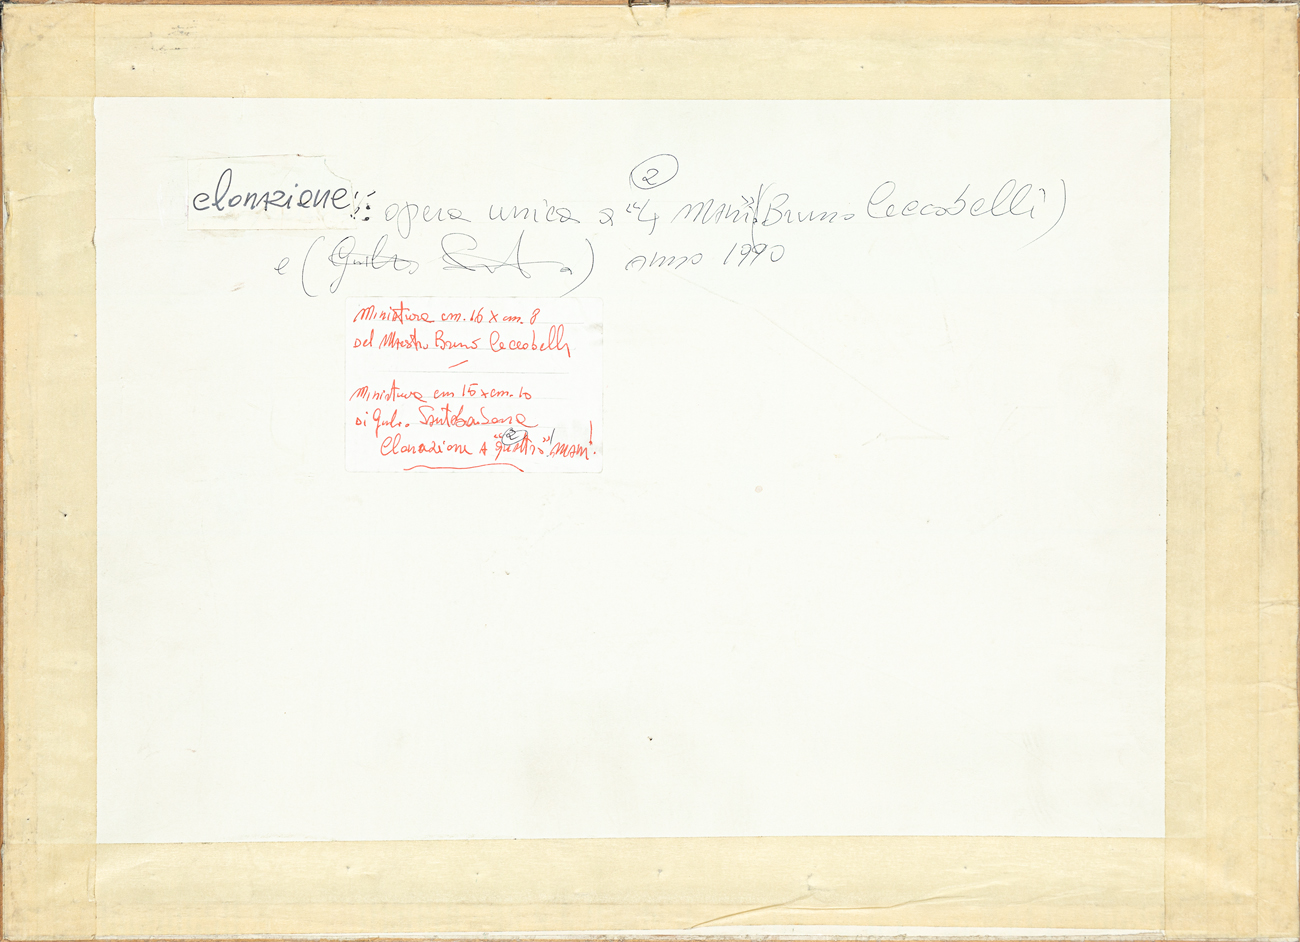 ②
clonazione: opera unica a "4 mani" (Bruno Ceccobelli)
e (Giulio) anno 1990
Miniatura cm. 16 x cm. 8
del Maestro Bruno Ceccobelli
Miniatura cm 15 x cm. 10
di Giulio
Clonazione a "quattro" mani!
②